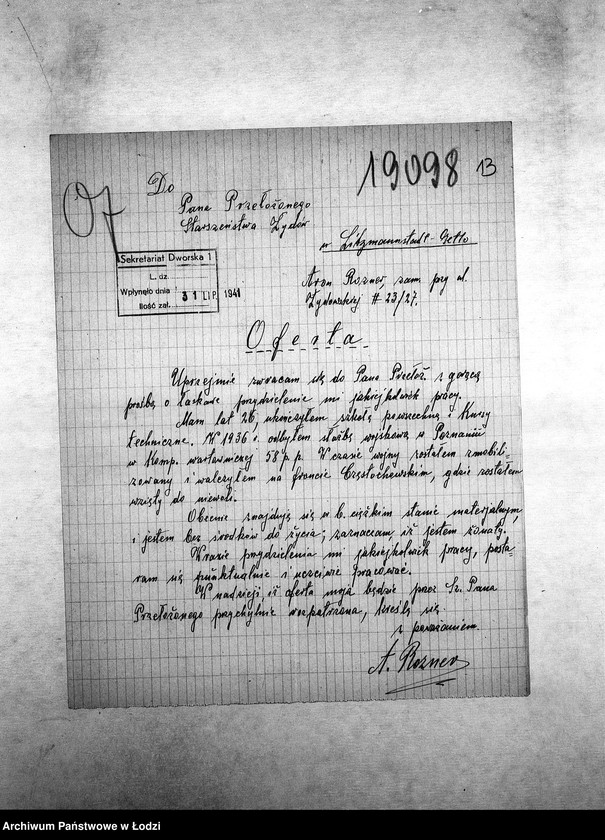 19098 13
Do
Pana Przełożonego
Starszeństwa Żydów
w Litzmannstadt-Getto
Sekretariat Dworska 1
L. dz.
Wpłynęło dnia 31 LIP. 1941
Ilość zał.
Aron Rozner, zam przy ul.
Żydowskiej # 23/27.
Oferta
Uprzejmie zwracam się do Pana Przełoż. z gorącą
prośbą o łaskawe przydzielenie mi jakiejkolwiek pracy.
Mam lat 26, ukończyłem szkołę powszechną i Kursy
techniczne. W 1936 r. odbyłem służbę wojskową w Poznaniu
w Komp. wartowniczej 58 p.p. W czasie wojny zostałem zmobili-
zowany i walczyłem na froncie Częstochowskim, gdzie zostałem
wzięty do niewoli.
Obecnie znajduję się w b. ciężkim stanie materjalnym,
i jestem bez środków do życia; zaznaczam iż jestem żonaty.
W razie przydzielenia mi jakiejkolwiek pracy, posta-
ram się punktualnie i uczciwie pracować.
W nadzieji iż oferta moja będzie przez Sz. Pana
Przełożonego przychylnie rozpatrzona, kreślę się
z poważaniem.
A. Rozner
Archiwum Państwowe w Łodzi